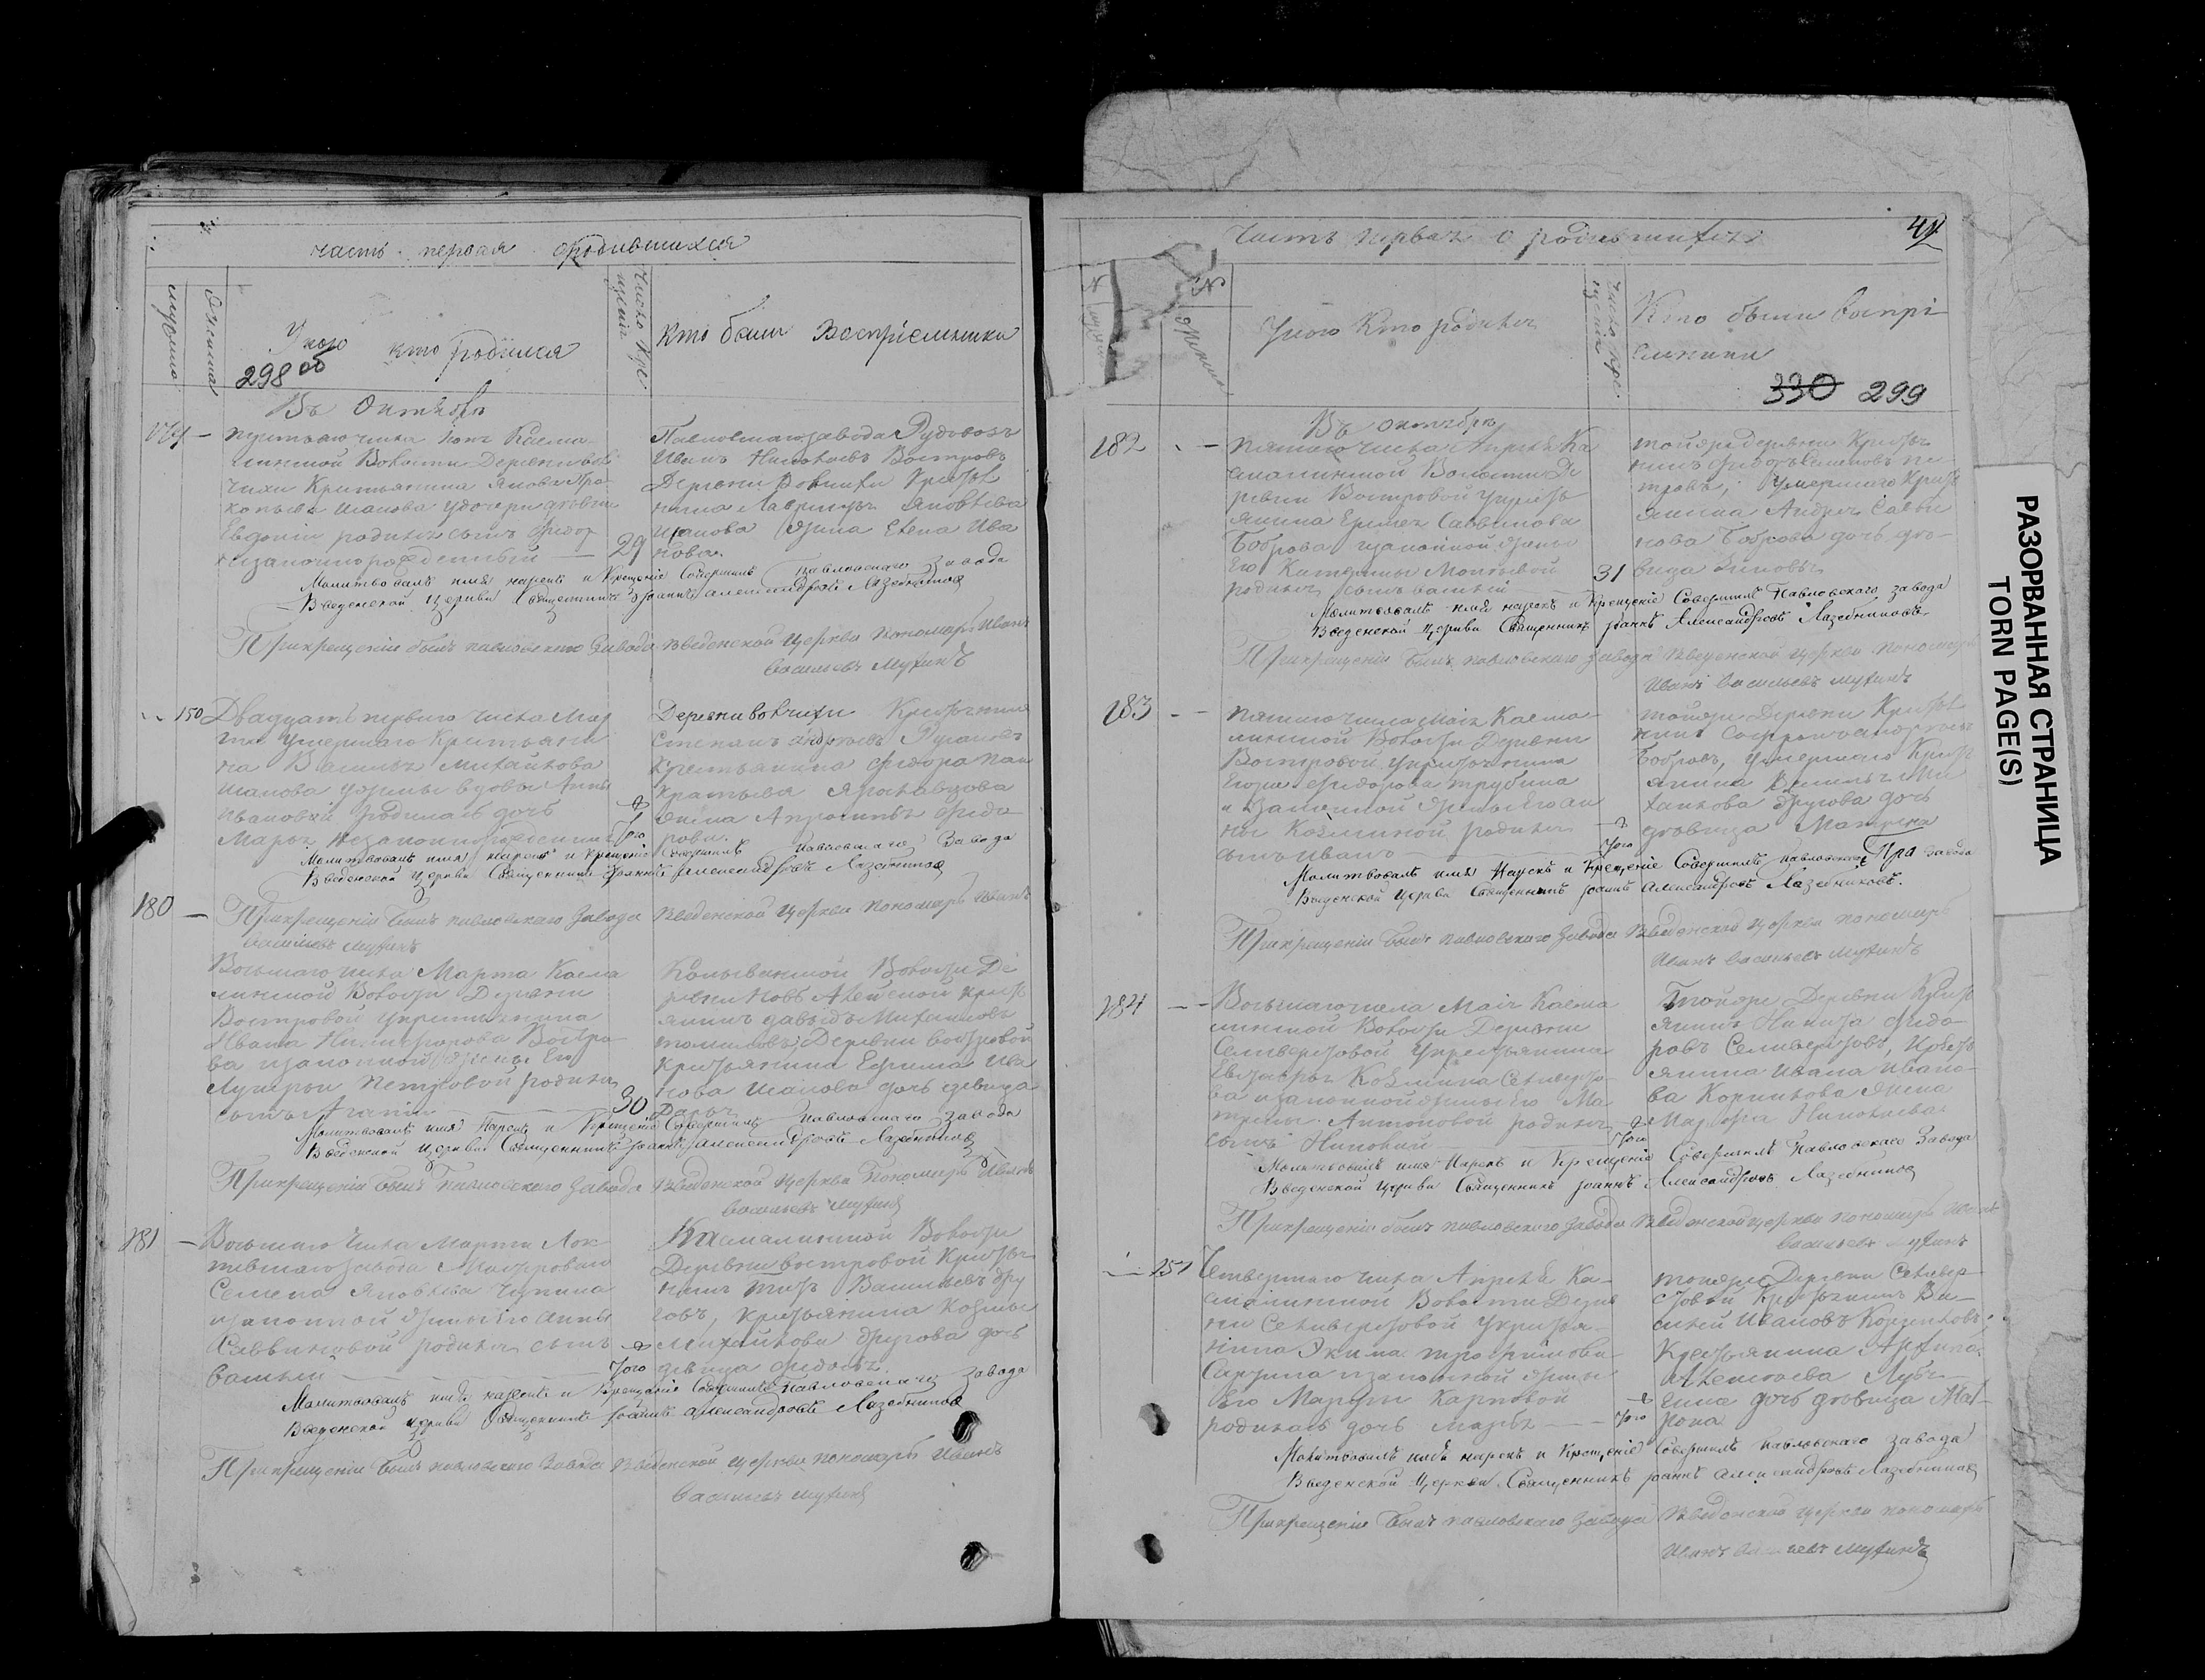 часть первая о родившихся
мужеска
женска
У кого кто родился
298 об
Число Кре
щенія
Кто были Восприемники
Въ Октябрѣ
179 –
третьяго числа
линской Волости Деревни Вол
чихи Крестьянина Якова Про
копьева Исакова у дочери дѣвки
Евдокіи родился сынъ Федор
незаконнорожденный — 29
Павловскаго завода Рудовозъ
Иванъ Николаевъ Востровъ
Деревни Волчихи Кресть
нина Лаврентья Яковлева
Исакова жена Елена Ива
нова.
Молитвовалъ имя нарекъ и Крещеніе Совершилъ Павловскаго Завода
Введенской Церкви Священникъ Іоаннъ Александровъ Лазебников
При крещеніи былъ павловскаго Завода Введенской Церкви Пономарь Иванъ
Васильевъ Мухинъ
150 Двадцать перваго числа Мар
та умершаго Крестьяни
на Василья Михайлова
Исакова у жены вдовы Анны
Ивановой родилась дочь
Марья незаконнорожденная
того
Деревни Волчихи Крестьянин
Степанъ Андреевъ
Крестьянина Федора Пан
кратьева Ярославцова
жена Апросинья Федо
рова.
Молитвовалъ имя нарекъ и Крещеніе Совершилъ Павловскаго Завода
Введенской Церкви Священникъ Іоаннъ Александровъ Лазебников
180 –
При крещеніи былъ павловскаго Завода Введенской Церкви Пономарь Иванъ
Васильевъ Мухинъ
Восьмаго числа Марта Касма
линской Волости Деревни
Востровой у крестьянина
Ивана Никифорова Востро
ва и законной жены Его
Лукерьи Петровой родился
сынъ — 30
Колыванской Волости Де
ревни Ново Алейской Кресть
янинъ Давыдъ Михайловъ
Томиловъ, Деревни Востровой
Крестьянина Ефима Ива
нова Исакова дочь девица
Дарья
Молитвовалъ имя Нарекъ и Крещеніе Совершилъ Павловскаго Завода
Введенской Церкви Священникъ Іоаннъ Александровъ Лазебников
При крещеніи былъ Павловскаго Завода Введенской Церкви Пономарь Иванъ
Васильевъ Мухинъ
181 –
Восьмаго числа Марта Лок
тевскаго завода Мастероваго
Семена Яковлева Чупина
и законной жены Его Анны
Саввиновой родился сынъ
Василій
того
Касмалинской Волости
Деревни Востровой Крестья
нинъ Титъ Васильевъ Дру
говъ, Крестьянина Козмы
Михайлова Другова дочь
девица Федосья
Молитвовалъ имя нарекъ и Крещеніе Совершилъ Павловскаго Завода
Введенской Церкви Священникъ Іоаннъ Александровъ Лазебников
При крещеніи былъ павловскаго Завода Введенской Церкви пономарь Иванъ
Васильевъ Мухинъ
Часть первая о родившихся
41
№
№
У кого Кто родился
Число кре
щенія
Кто были воспрі
емники
330 299
Въ октябрѣ
182 –
пятаго числа Апреля Ка
смалинской Волости Де
ревни Востровой у кресть
янина Еремея Саввинова
Боброва и законной жены
Его Катерины Мокеевой
родился сынъ Василій
31
той же деревни Крестья
нинъ Федоръ Семеновъ Пе
тровъ, Умершаго Крест
янина Андрея Савви
нова Боброва дочь дѣ
вица
Молитвовалъ имя нарекъ и Крещеніе Совершилъ Павловскаго завода
Введенской Церкви Священникъ Іоаннъ Александровъ Лазебниковъ.
При крещеніи былъ павловскаго завода Введенской церкви пономарь
Иванъ Васильевъ Мухинъ
183 –
пятаго числа Маія Касма
линской Волости Деревни
Востровой у крестьянина
Егора Федорова Трубина
и Законной жены Его Ан
ны Козминой родился
сынъ Иванъ
того
той же Деревни Кресть
нинъ
Бобровъ, умершаго Крест
янина Василья Ми
хайлова Другова дочь
дѣвица Матрена
Молитвовалъ имя Нарекъ и Крещеніе Совершилъ Павловскаго Завода
Введенской Церкви Священникъ Іоаннъ Александровъ Лазебниковъ.
При крещеніи былъ павловскаго Завода Введенской Церкви пономарь
Иванъ Васильевъ Мухинъ
184 –
Восьмаго числа Маія Касма
линской Волости Деревни
Селиверстовой у крестьянина
Козмина Селиверсто
ва и законной жены Его Ма
трены Антоновой родился
сынъ Николай
того
Той же Деревни Крест
янинъ Никита Федо
ровъ Селиверстовъ, Крест
янина Ивана Ивано
ва Корникова жена
Марфа Николаева
Молитвовалъ имя Нарекъ и Крещеніе Совершилъ Павловскаго Завода
Введенской Церкви Священникъ Іоаннъ Александровъ Лазебников
При крещеніи былъ павловскаго Завода Введенской церкви пономарь Иванъ
Васильевъ Мухинъ
151
Четвертаго числа Апреля Ка
смалинской Волости Дерев
ни Селиверстовой у крестья
нина Екима Трофимова
и законной жены
Его Марфы Карповой
родилась дочь Марья
того
той же Деревни Селивер
стовой Крестьянинъ Ва
силій Ивановъ Корниковъ,
Крестьянина Архипа
Алексеева
гина дочь дѣвица Мат
рона
Молитвовалъ имя нарекъ и Крещеніе Совершилъ Павловскаго завода
Введенской Церкви Священникъ Іоаннъ Александровъ Лазебников
При крещеніи былъ павловскаго Завода Введенской церкви пономарь
Иванъ Васильевъ Мухинъ
РАЗОРВАННАЯ СТРАНИЦА
TORN PAGE(S)